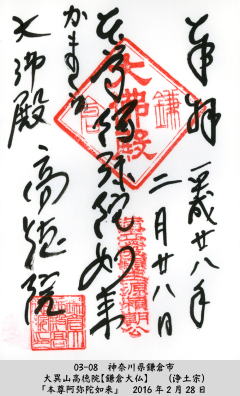 奉拝
平成廿八年
二月廿八日
本尊阿弥陀如来
かまくら
大佛殿
高徳院
鎌倉
大佛殿
03-08 神奈川県鎌倉市
大異山高徳院【鎌倉大仏】 (浄土宗)
「本尊阿弥陀如来」 2016年2月28日